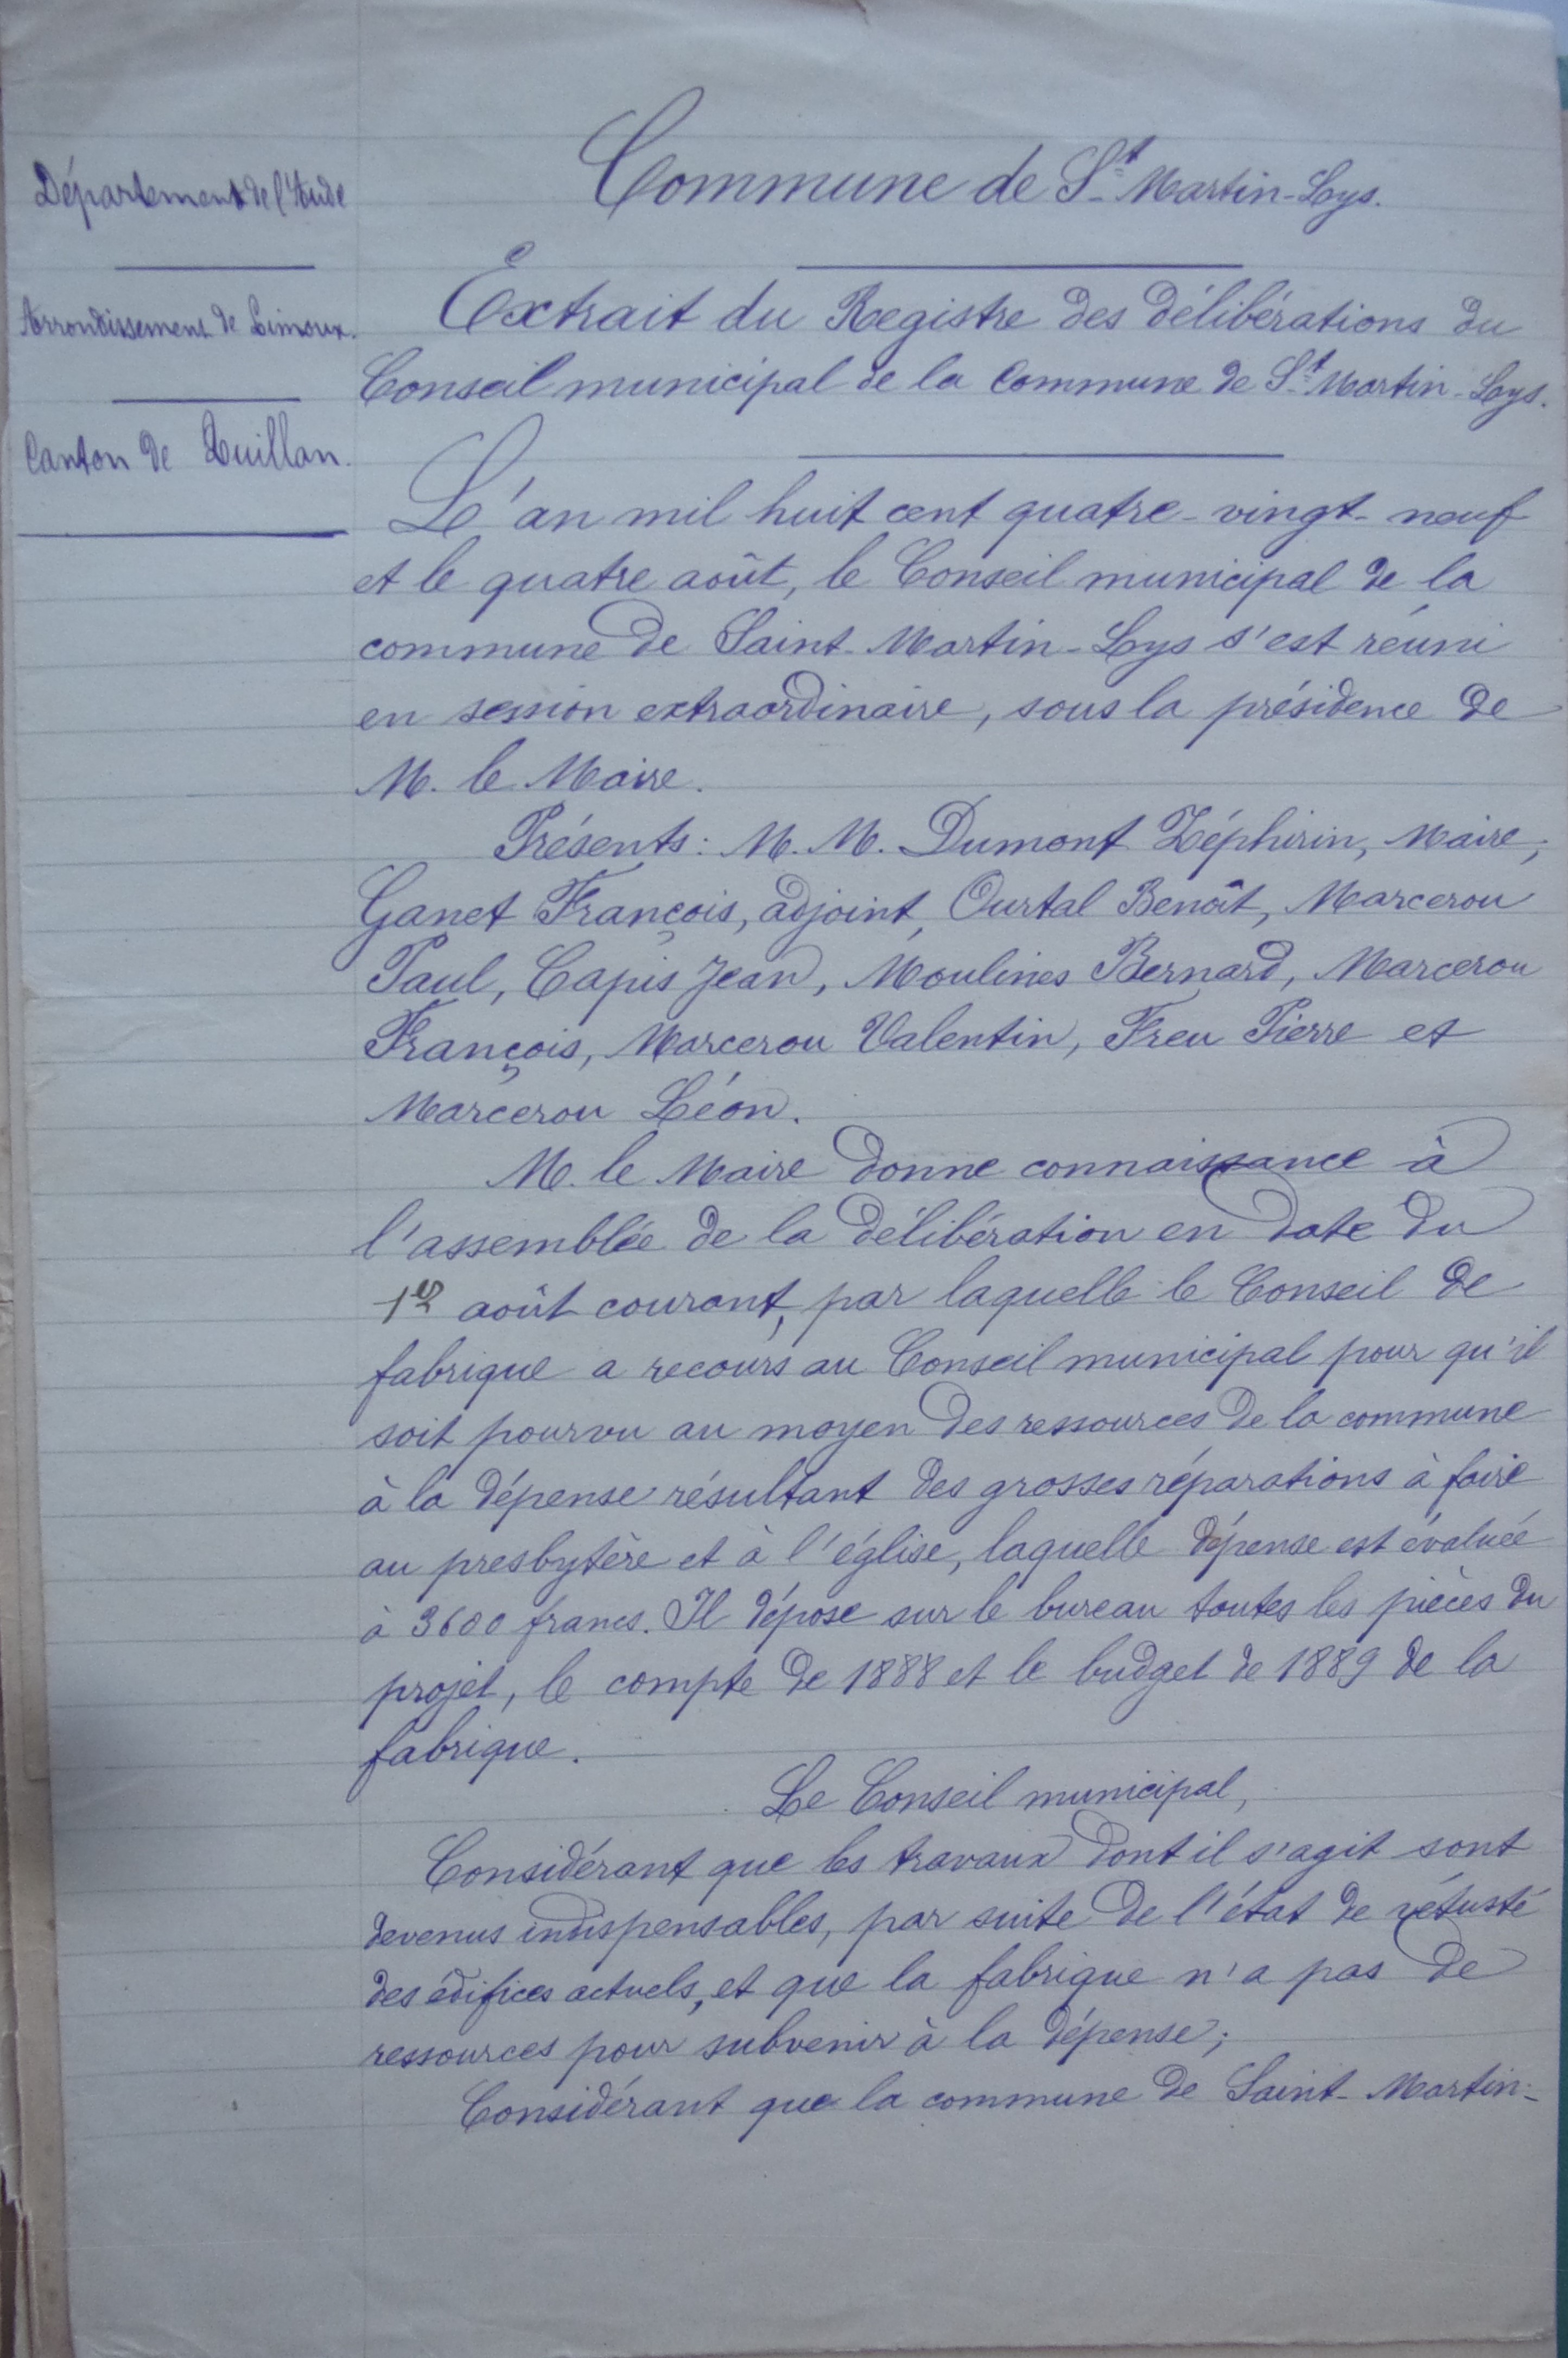 Département de l'Aude
Arrondissement de Limoux.
Canton de Quillan.
Commune de S.t Martin-Lys.
Extrait du Registre des délibérations du
Conseil municipal de la Commune de S.t Martin-Lys.
L'an mil huit cent quatre-vingt-neuf
et le quatre août, le Conseil municipal de la
commune de Saint-Martin-Lys s'est réuni
en session extraordinaire, sous la présidence de
M. le Maire.
Présents: M. M. Dumont Zéphirin, Maire,
Ganet François, adjoint, Ourtal Benoît, Marcerou
Paul, Capis Jean, Moulines Bernard, Marcerou
François, Marcerou Valentin, Freu Pierre et
Marcerou Léon.
M. le Maire donne connaissance à
l'assemblée de la délibération en date du
1er août courant, par laquelle le Conseil de
fabrique a recours au Conseil municipal pour qu'il
soit pourvu au moyen des ressources de la commune
à la dépense résultant des grosses réparations à faire
au presbytère et à l'église, laquelle dépense est évaluée
à 3600 francs. Il dépose sur le bureau toutes les pièces du
projet, le compte de 1888 et le budget de 1889 de la
fabrique.
Le Conseil municipal,
Considérant que les travaux dont il s'agit sont
devenus indispensables, par suite de l'état de vétusté
des édifices actuels, et que la fabrique n'a pas de
ressources pour subvenir à la dépense;
Considérant que la commune de Saint-Martin-